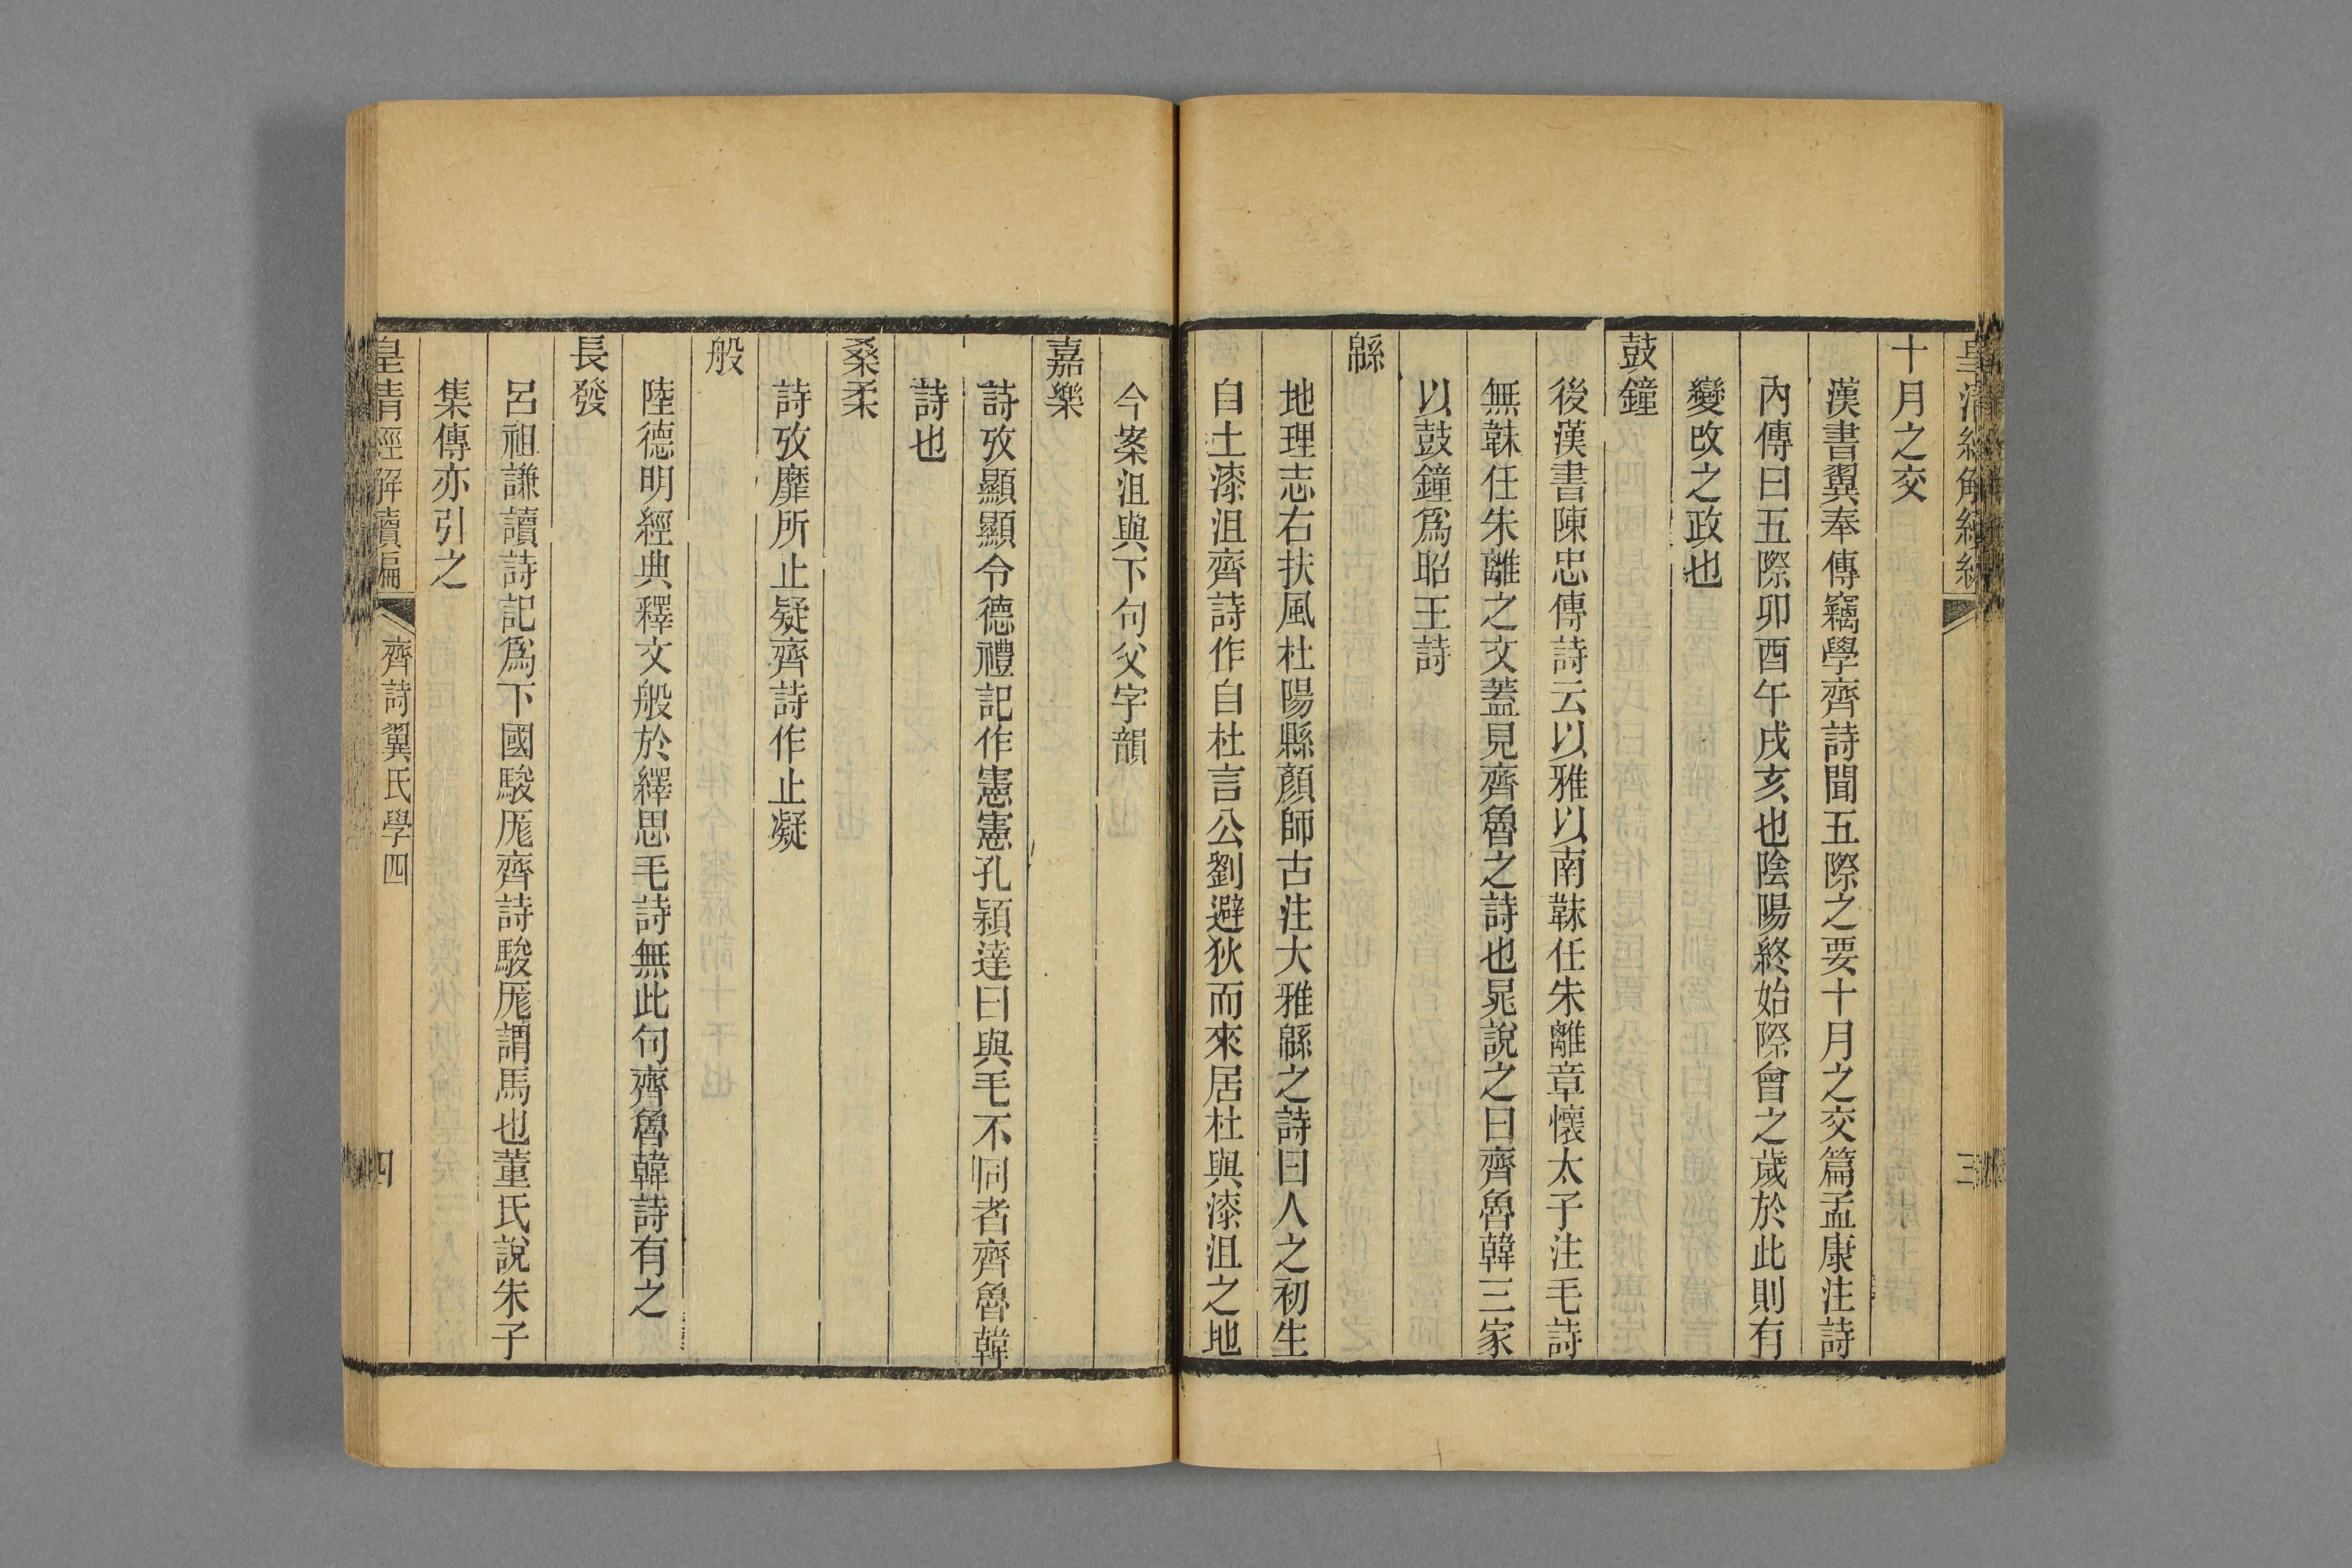 十月之交
漢書翼奉傳竊學齊詩聞五際之要十月之交篇孟康注詩
內傳曰五際卯酉午戌亥也陰陽終始際會之歲於此則有
變改之政也
鼓鐘
後漢書陳忠傳詩云以雅以南韎任朱離章懷太子注毛詩
無韎任朱離之文蓋見齊魯之詩也晁說之曰齊魯韓三家
以鼓鐘爲昭王詩
緜
地理志右扶風杜陽縣顏師古注大雅緜之詩曰人之初生
自土漆沮齊詩作自杜言公劉避狄而來居杜與漆沮之地
今案沮與下句父字韻
嘉樂
詩攷顯顯令德禮記作憲憲孔穎達曰與毛不同者齊魯韓
詩也
桑柔
詩攷靡所止疑齊詩作止凝
般
陸德明經典釋文般於繹思毛詩無此句齊魯韓詩有之
長發
呂祖謙讀詩記爲下國駿厖齊詩駿厖謂馬也董氏說朱子
集傳亦引之
皇清經解續編 齊詩翼氏學四 四